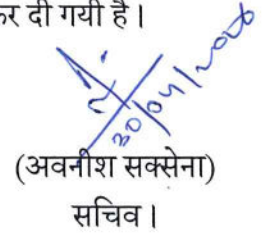 कर दी गयी है।
30/04/2026
(अवनीश सक्सेना)
सचिव।